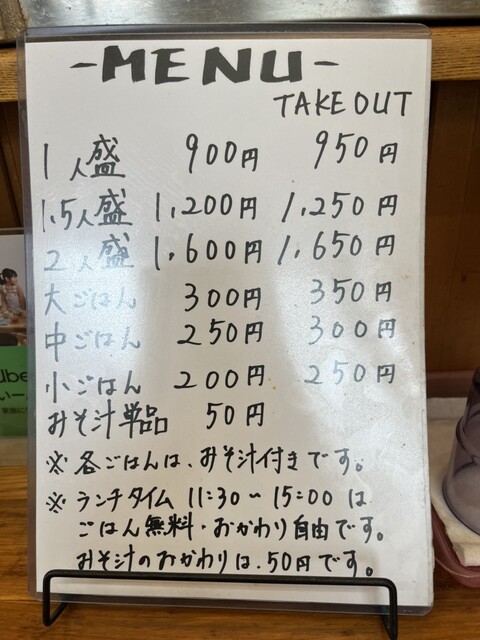 -MENU-
TAKE OUT
1人盛 900円 950円
1.5人盛 1,200円 1,250円
2人盛 1,600円 1,650円
大ごはん 300円 350円
中ごはん 250円 300円
小ごはん 200円 250円
みそ汁単品 50円
※各ごはんは、みそ汁付きです。
※ランチタイム 11:30~15:00は
ごはん無料・おかわり自由です。
みそ汁のおかわりは、50円です。